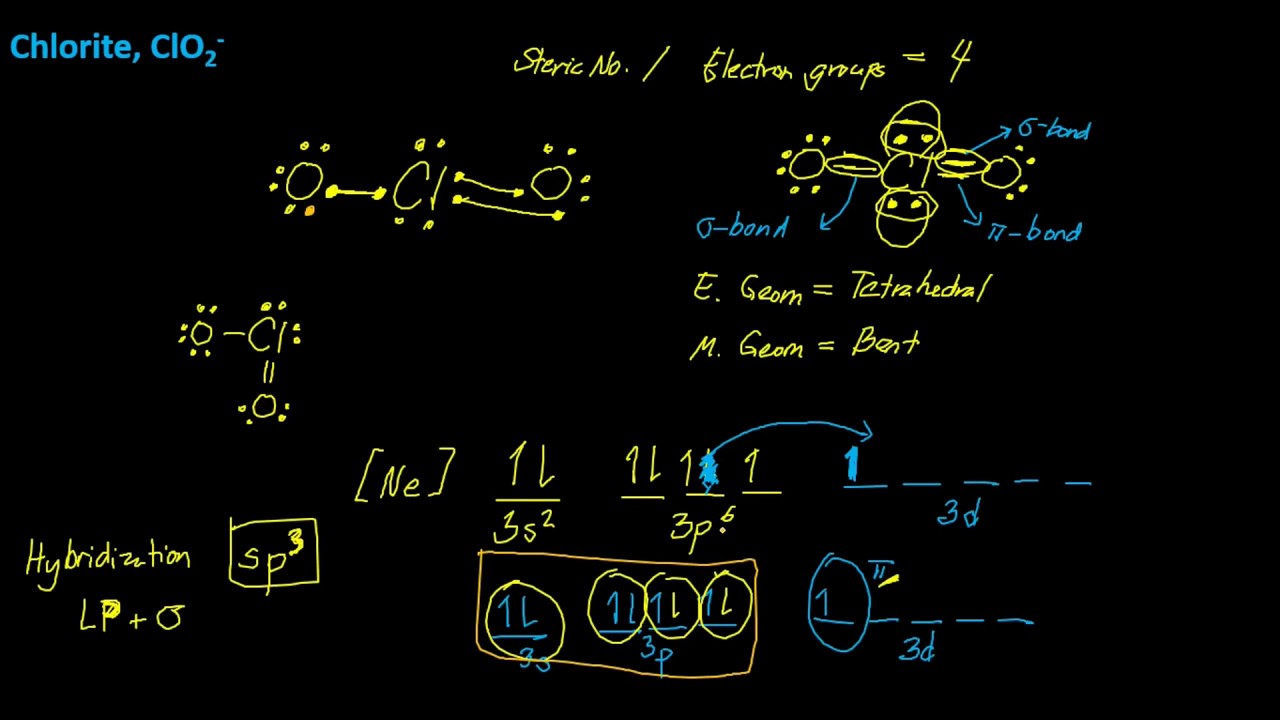 Chlorite, ClO₂⁻
Steric No. / Electron groups = 4
O Cl O
O Cl O
σ-bond
σ-bond
π-bond
E. Geom = Tetrahedral
M. Geom = Bent
O - Cl
||
O
[Ne] 1l 1l 1 1 1
3s² 3p⁵ 3d
Hybridization sp³
LP + σ
1l 1l 1l 1l 1 π
3s 3p 3d